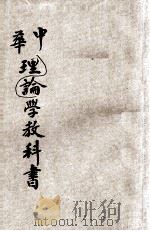 中華
理論學教科書